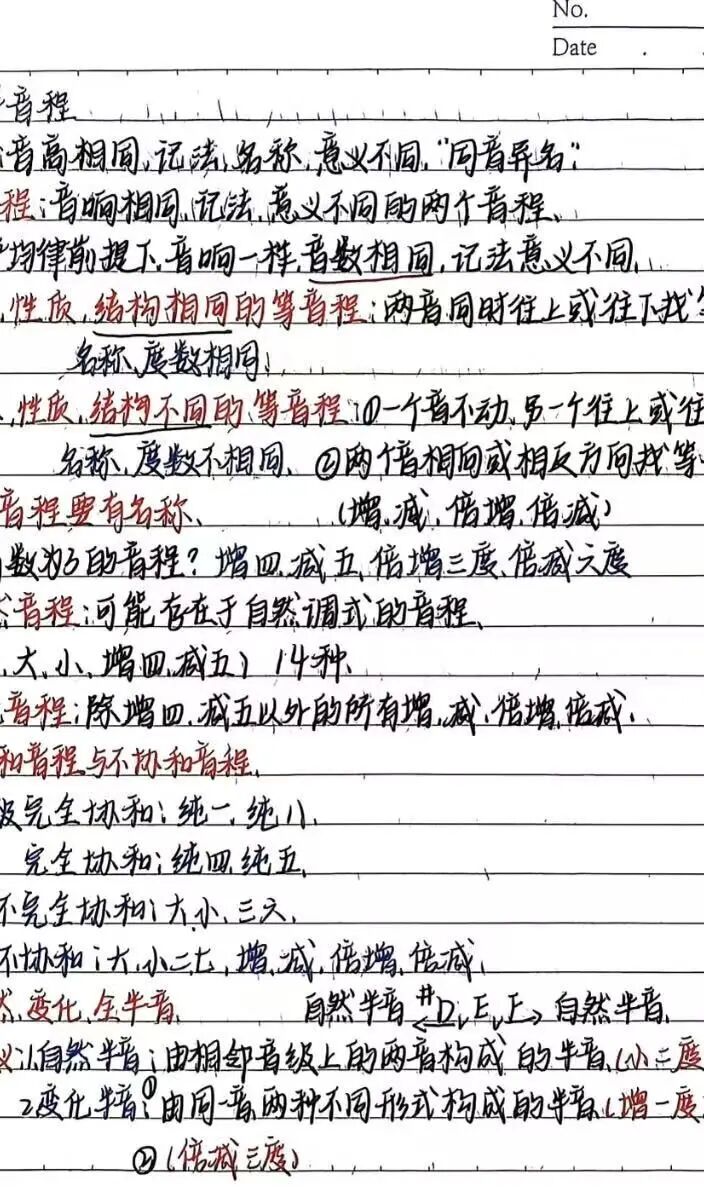 No.
Date
音程
音高相同,记法,名称,意义不同,"同音异名":
程:音响相同,记法,意义不同的两个音程、
均律前提下,音响一样,音数相同,记法意义不同,
,性质,结构相同的等音程:两音同时往上或往下找
名称、度数相同;
、性质,结构不同的等音程:①一个音不动,另一个往上或往
名称、度数不相同、②两个音相向或相反方向找等
音程要有名称、(增,减,倍增,倍减)
数为3的音程?增四,减五,倍增三度,倍减六度
音程:可能存在于自然调式的音程、
、大、小、增四,减五)14种、
音程:除增四,减五以外的所有增,减,倍增,倍减、
和音程与不协和音程、
完全协和:纯一,纯八、
完全协和:纯四,纯五、
不完全协和:大,小、三六、
不协和:大,小二七,增,减,倍增,倍减、
变化,全半音、 自然半音 #D、E、F 自然半音、
义:1自然半音:由相邻音级上的两音构成的半音、(小二度
2变化半音:①由同一音两种不同形式构成的半音、(增一度
②(倍减三度)